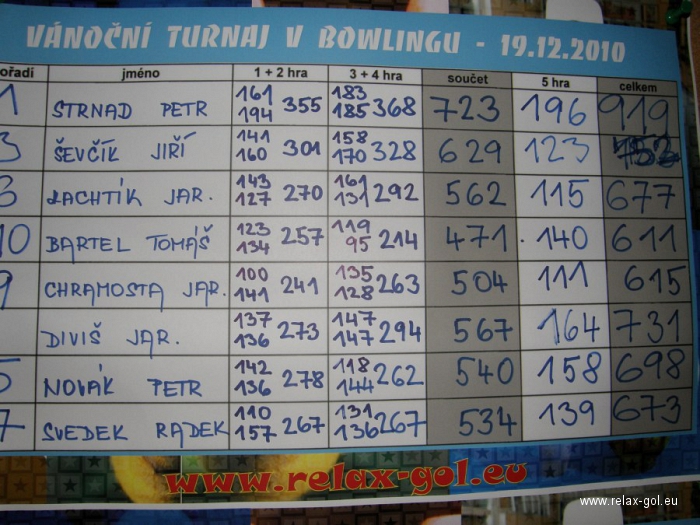 VÁNOČNÍ TURNAJ V BOWLINGU - 19.12.2010
ořadí jméno 1 + 2 hra 3 + 4 hra součet 5 hra celkem
1 STRNAD PETR 161 194 355 183 185 368 723 196 919
3 ŠEVČÍK JIŘÍ 141 160 301 158 170 328 629 123
6 LACHTÍK JAR. 143 127 270 161 131 292 562 115 677
10 BARTEL TOMÁŠ 123 134 257 119 95 214 471 140 611
9 CHRAMOSTA JAR. 100 141 241 135 128 263 504 111 615
DIVIŠ JAR. 137 136 273 147 147 294 567 164 731
5 NOVÁK PETR 142 136 278 118 144 262 540 158 698
7 SVEDEK RADEK 110 157 267 131 136 267 534 139 673
www.relax-gol.eu
www.relax-gol.eu